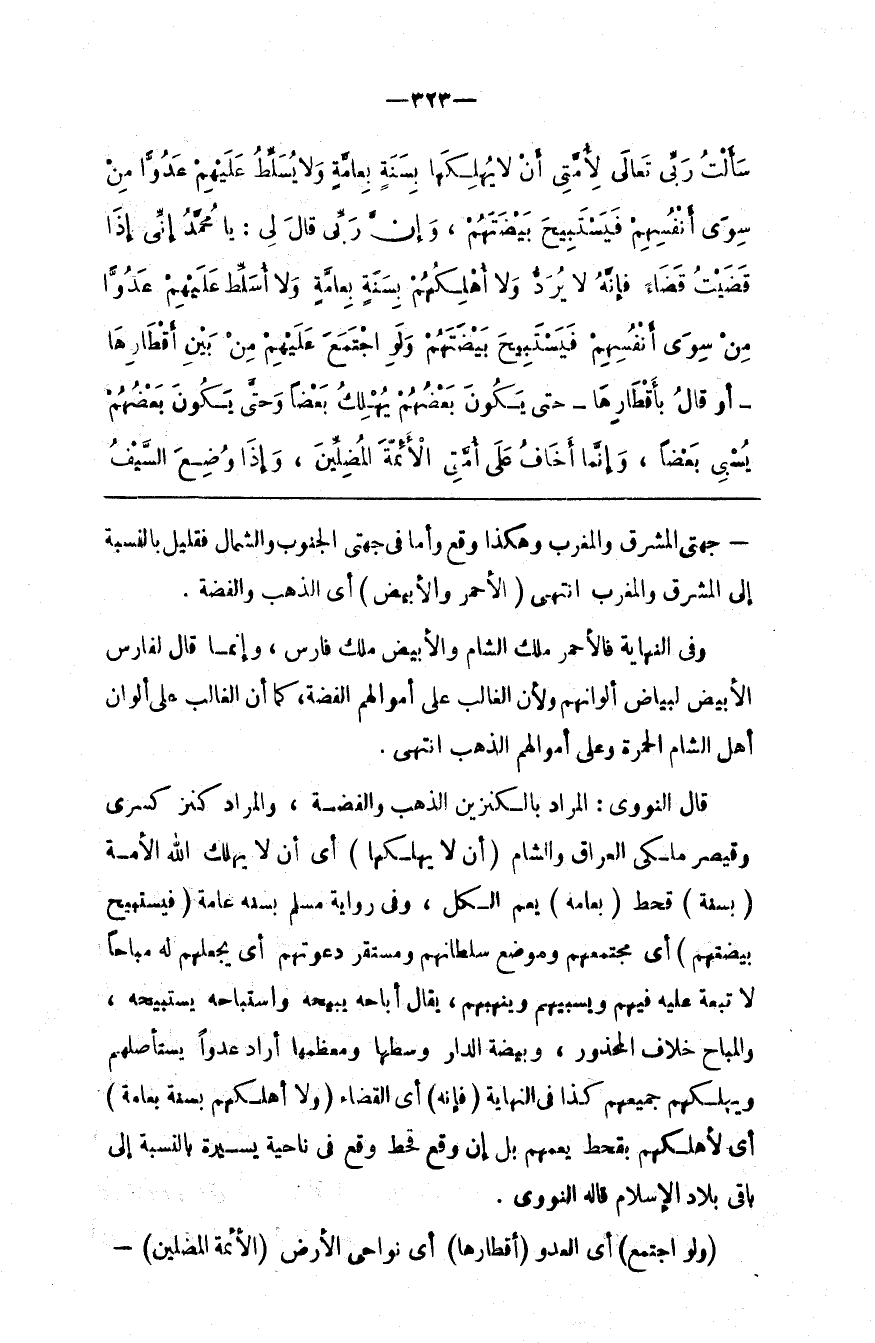 —٣٢٣—
سَأَلْتُ رَبِّى تَعَالَى لِأُمَّتِى أَنْ لَا يُهْلِكَهَا بِسَنَةٍ بِعَامَّةٍ وَلَا يُسَلِّطُ عَلَيْهِمْ عَدُوًّا مِنْ
سِوَى أَنْفُسِهِمْ فَيَسْتَبِيحَ بَيْضَتَهُمْ ، وَإِنَّ رَبِّى قَالَ لِى : يَا مُحَمَّدُ إِنِّى إِذَا
قَضَيْتُ قَضَاءً فَإِنَّهُ لَا يُرَدُّ وَلَا أُهْلِكُهُمْ بِسَنَةٍ بِعَامَّةٍ وَلَا أُسَلِّطُ عَلَيْهِمْ عَدُوًّا
مِنْ سِوَى أَنْفُسِهِمْ فَيَسْتَبِيحَ بَيْضَتَهُمْ وَلَوِ اجْتَمَعَ عَلَيْهِمْ مِنْ بَيْنِ أَقْطَارِهَا
ـ أو قَالُ بِأَقْطَارِهَا ـ حتى يَكُونَ بَعْضُهُمْ يُهْلِكُ بَعْضاً وَحَتَّى يَكُونَ بَعْضُهُمْ
يُسْبِى بَعْضاً ، وَإِنَّمَا أَخَافُ عَلَى أُمَّتِى الْأَئِمَّةَ الْمُضِلِّينَ ، وَإِذَا وُضِعَ السَّيْفُ
— جهتى المشرق والمغرب وهكذا وقع وأما فى جهتى الجنوب والشمال فقليل بالنسبة
إلى المشرق والمغرب انتهى ( الأحمر والأبيض ) أى الذهب والفضة .
وفى النهاية فالأحمر ملك الشام والأبيض ملك فارس ، وإنمـا قال لفارس
الأبيض لبياض ألوانهم ولأن الغالب على أموالهم الفضة، كما أن الغالب على ألوان
أهل الشام الحمرة وعلى أموالهم الذهب انتهى .
قال النووى : المراد بالكنزين الذهب والفضة ، والمراد كنز كسرى
وقيصر ملكى العراق والشام ( أن لا يهلكها ) أى أن لا يهلك الله الأمة
( بسنة ) قحط ( بعامة ) يعم الكل ، وفى رواية مسلم بسنة عامة ( فيستبيح
بيضتهم ) أى مجتمعهم وموضع سلطانهم ومستقر دعوتهم أى يجعلهم له مباحاً
لا تبعة عليه فيهم ويسبيهم وينهبهم ، يقال أباحه يبيحه واستباحه يستبيحه ،
والمباح خلاف المحذور ، وبيضة الدار وسطها ومعظمها أراد عدواً يستأصلهم
ويهلكهم جميعهم كذا فى النهاية ( فإنه ) أى القضاء ( ولا أهلكهم بسنة بعامة )
أى لأهلكهم بقحط يعمهم بل إن وقع قحط وقع فى ناحية يسيرة بالنسبة إلى
باقى بلاد الإسلام قاله النووى .
(ولو اجتمع) أى العدو (أقطارها) أى نواحى الأرض (الأئمة المضلين) —